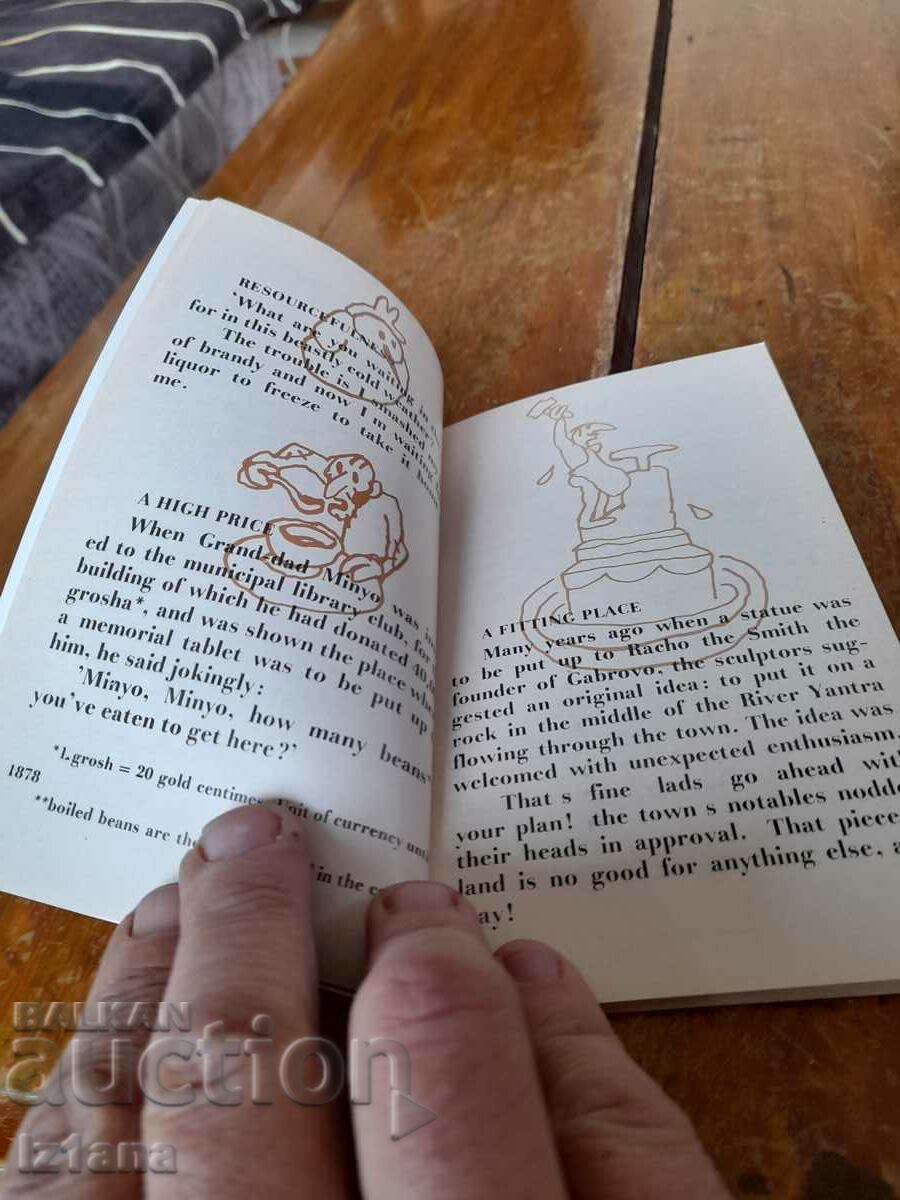 RESOURCEFULNE
'What are you waiting
for in this beastly cold weather?
The trouble is I smashed my
of brandy and now I m waiting
liquor to freeze to take it
me.
A HIGH PRICE
When Grand-dad Minyo was in
ed to the municipal library club, for
building of which he had donated 40,
grosha*, and was shown the place
a memorial tablet was to be put up
him, he said jokingly:
'Miayo, Minyo, how many beans
you've eaten to get here?'
*1.grosh = 20 gold centimes. Unit of currency
1878
**boiled beans are the
in the
A FITTING PLACE
Many years ago when a statue was
to be put up to Racho the Smith the
founder of Gabrovo, the sculptors sug-
gested an original idea: to put it on a
rock in the middle of the River Yantra
flowing through the town. The idea was
welcomed with unexpected enthusiasm.
That s fine lads go ahead with
your plan! the town s notables nodde
their heads in approval. That piece
land is no good for anything else, a
ay!
BALKAN
auction
Iz1ana